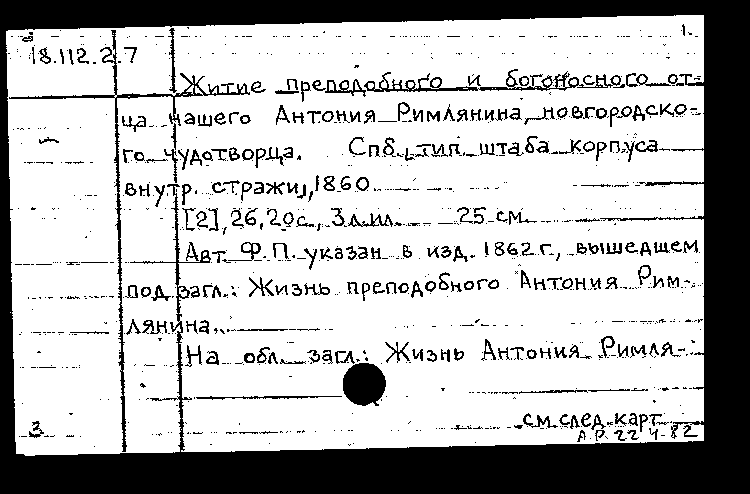 1.
18.112.2.7
Житие преподобного и богоносного от-
ца нашего Антония Римлянина, новгородско-
го чудотворца. Спб., тип. штаба корпуса
внутр. стражи, 1860.
[2], 26, 20с., 3л.ил. 25 см.
Авт. Ф.П. указан в изд. 1862 г., вышедшем
под загл.: Жизнь преподобного Антония Рим-
лянина.
На обл. загл.: Жизнь Антония Римля-
см. след. карт.
3
А.Р. 22 4-82